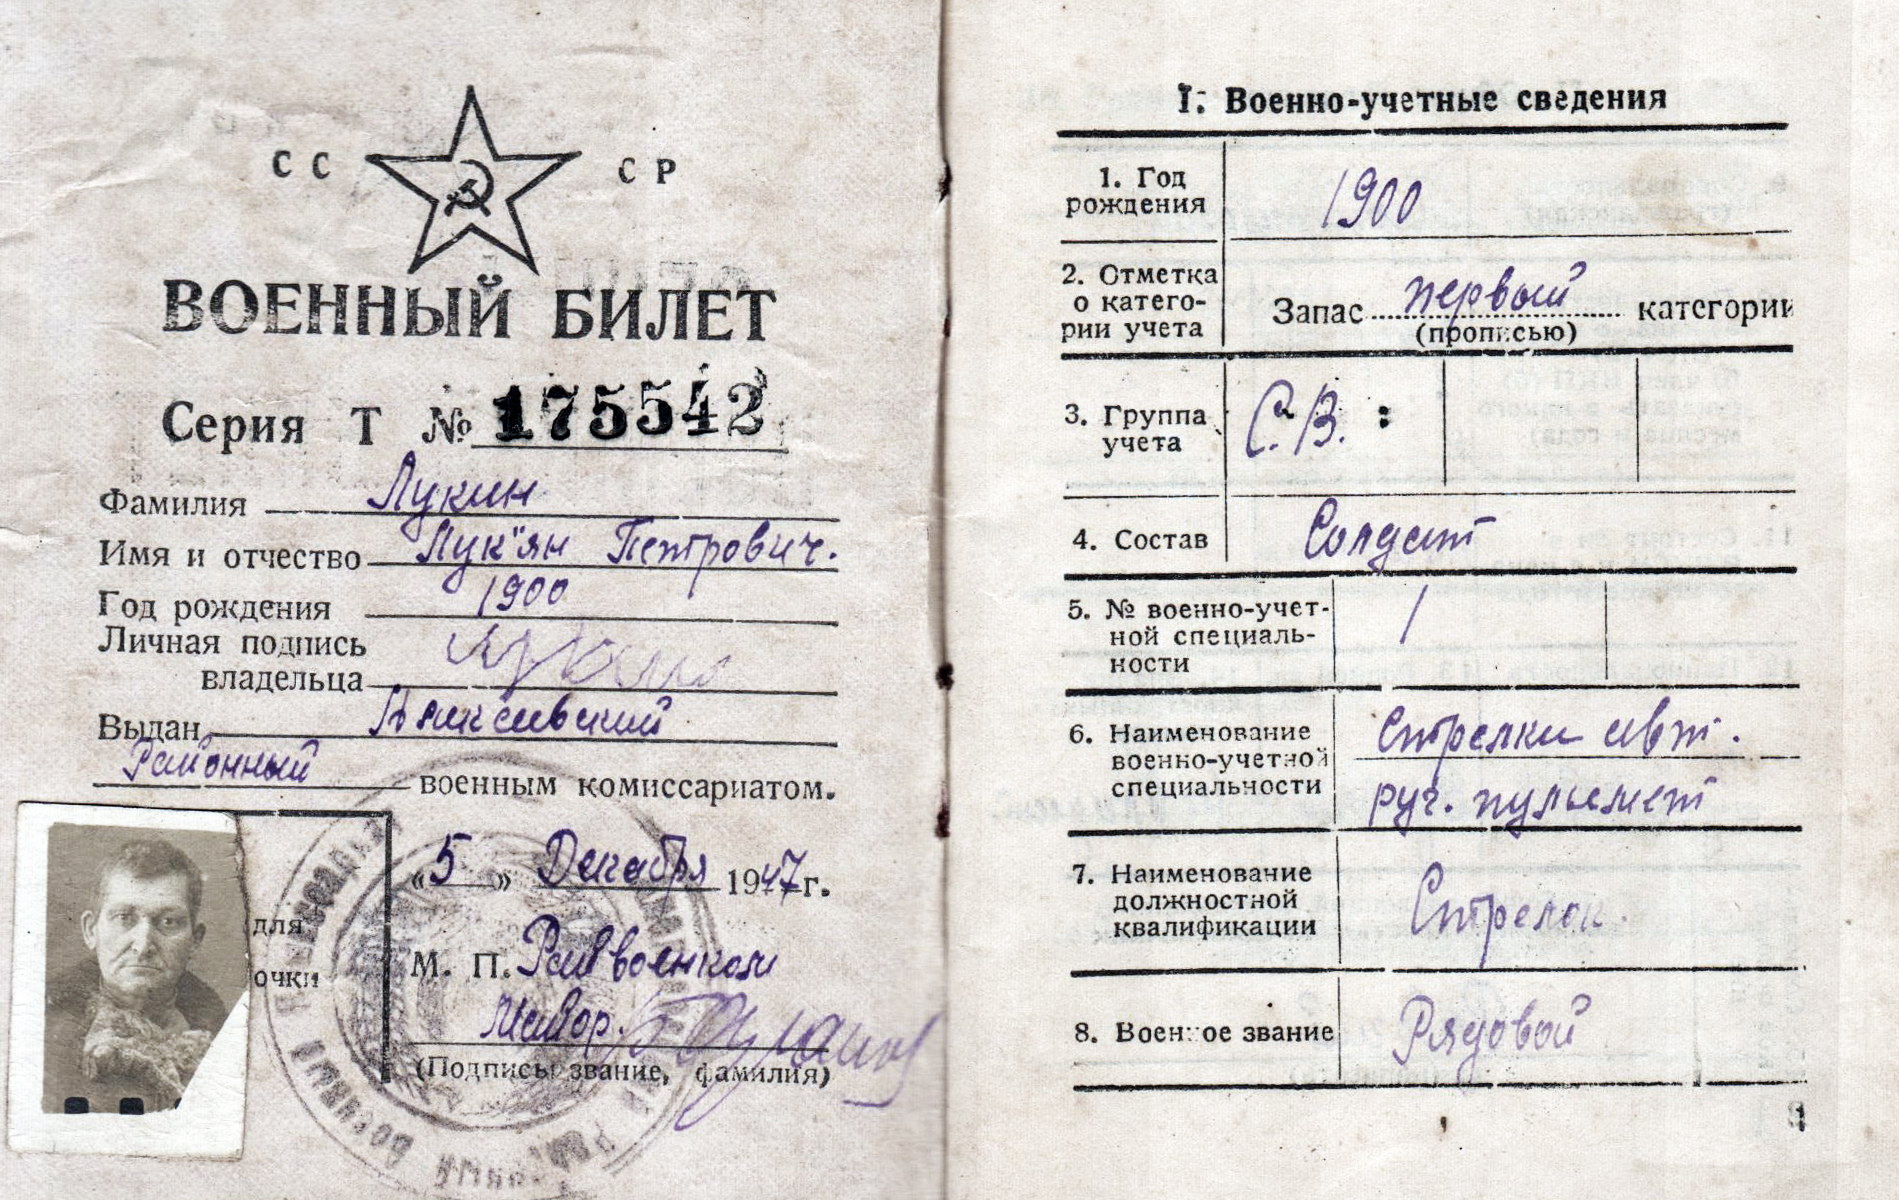 СС СР
ВОЕННЫЙ БИЛЕТ
Серия Т № 175542
Фамилия Лукин
Имя и отчество Лук"ян Петрович.
Год рождения 1900
Личная подпись
владельца
Выдан
Районный военным комиссариатом.
для
очки
«5» Декабря 1947 г.
М. П. Райвоенком
Майор
(Подпись, звание, фамилия)
I. Военно-учетные сведения
1. Год
рождения
1900
2. Отметка
о катего-
рии учета
Запас первый категории
(прописью)
3. Группа
учета
С.В.
4. Состав
Солдат
5. № военно-учет-
ной специаль-
ности
1
6. Наименование
военно-учетной
специальности
Стрелки авт.
руч. пулемет
7. Наименование
должностной
квалификации
Стрелок.
8. Военное звание
Рядовой
1